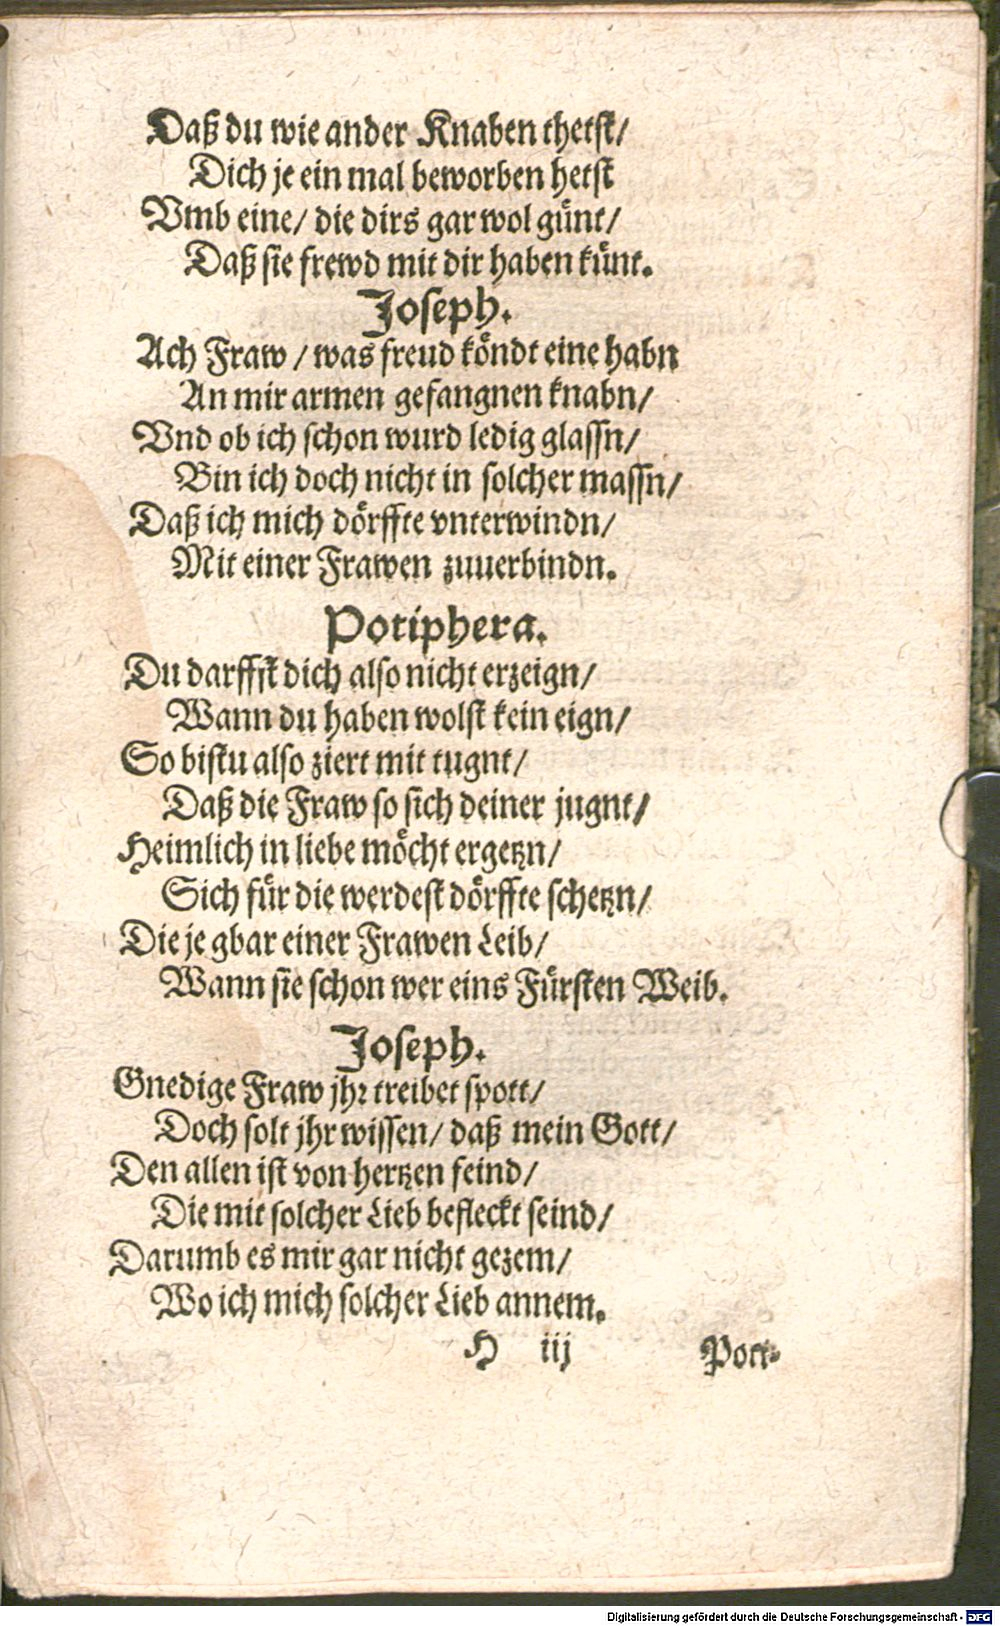 Daß du wie ander Knaben thetst/
Dich je ein mal beworben hetst
Vmb eine/ die dirs gar wol günt/
Daß sie frewd mit dir haben künt.
Joseph.
Ach Fraw / was freud köndt eine habn
An mir armen gefangnen knabn/
Vnd ob ich schon wurd ledig glassn/
Bin ich doch nicht in solcher massn/
Daß ich mich dörffte vnterwindn/
Mit einer Frawen zuuerbindn.
Potiphera.
Du darffst dich also nicht erzeign/
Wann du haben wolst kein eign/
So bistu also ziert mit tugnt/
Daß die Fraw so sich deiner jugnt/
Heimlich in liebe möcht ergetzn/
Sich für die werdest dörffte schetzn/
Die je gbar einer Frawen Leib/
Wann sie schon wer eins Fürsten Weib.
Joseph.
Gnedige Fraw jhr treibet spott/
Doch solt jhr wissen/ daß mein Gott/
Den allen ist von hertzen feind/
Die mit solcher Lieb befleckt seind/
Darumb es mir gar nicht gezem/
Wo ich mich solcher Lieb annem.
H iij Pott-
Digitalisierung gefördert durch die Deutsche Forschungsgemeinschaft - DFG